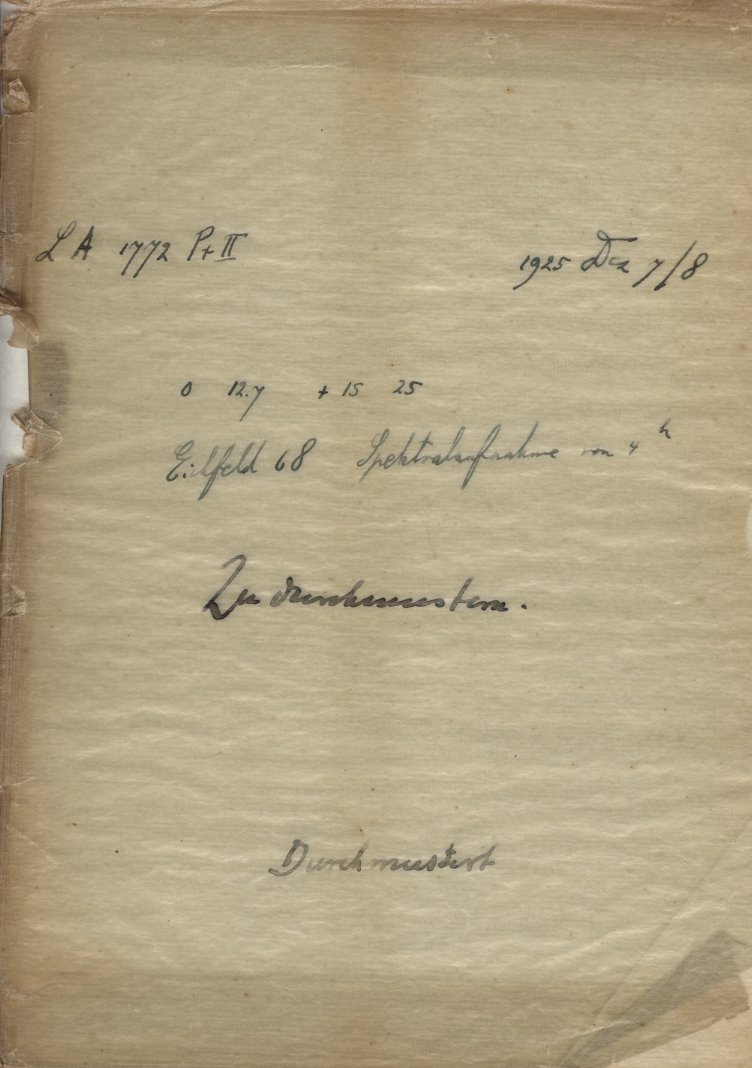 LA 1772 Pt II 1925 Dez 7/8
0 12.7 + 15 25
Eichfeld 68 Spektralaufnahme von 4 h
Zu durchmustern.
Durchmustert